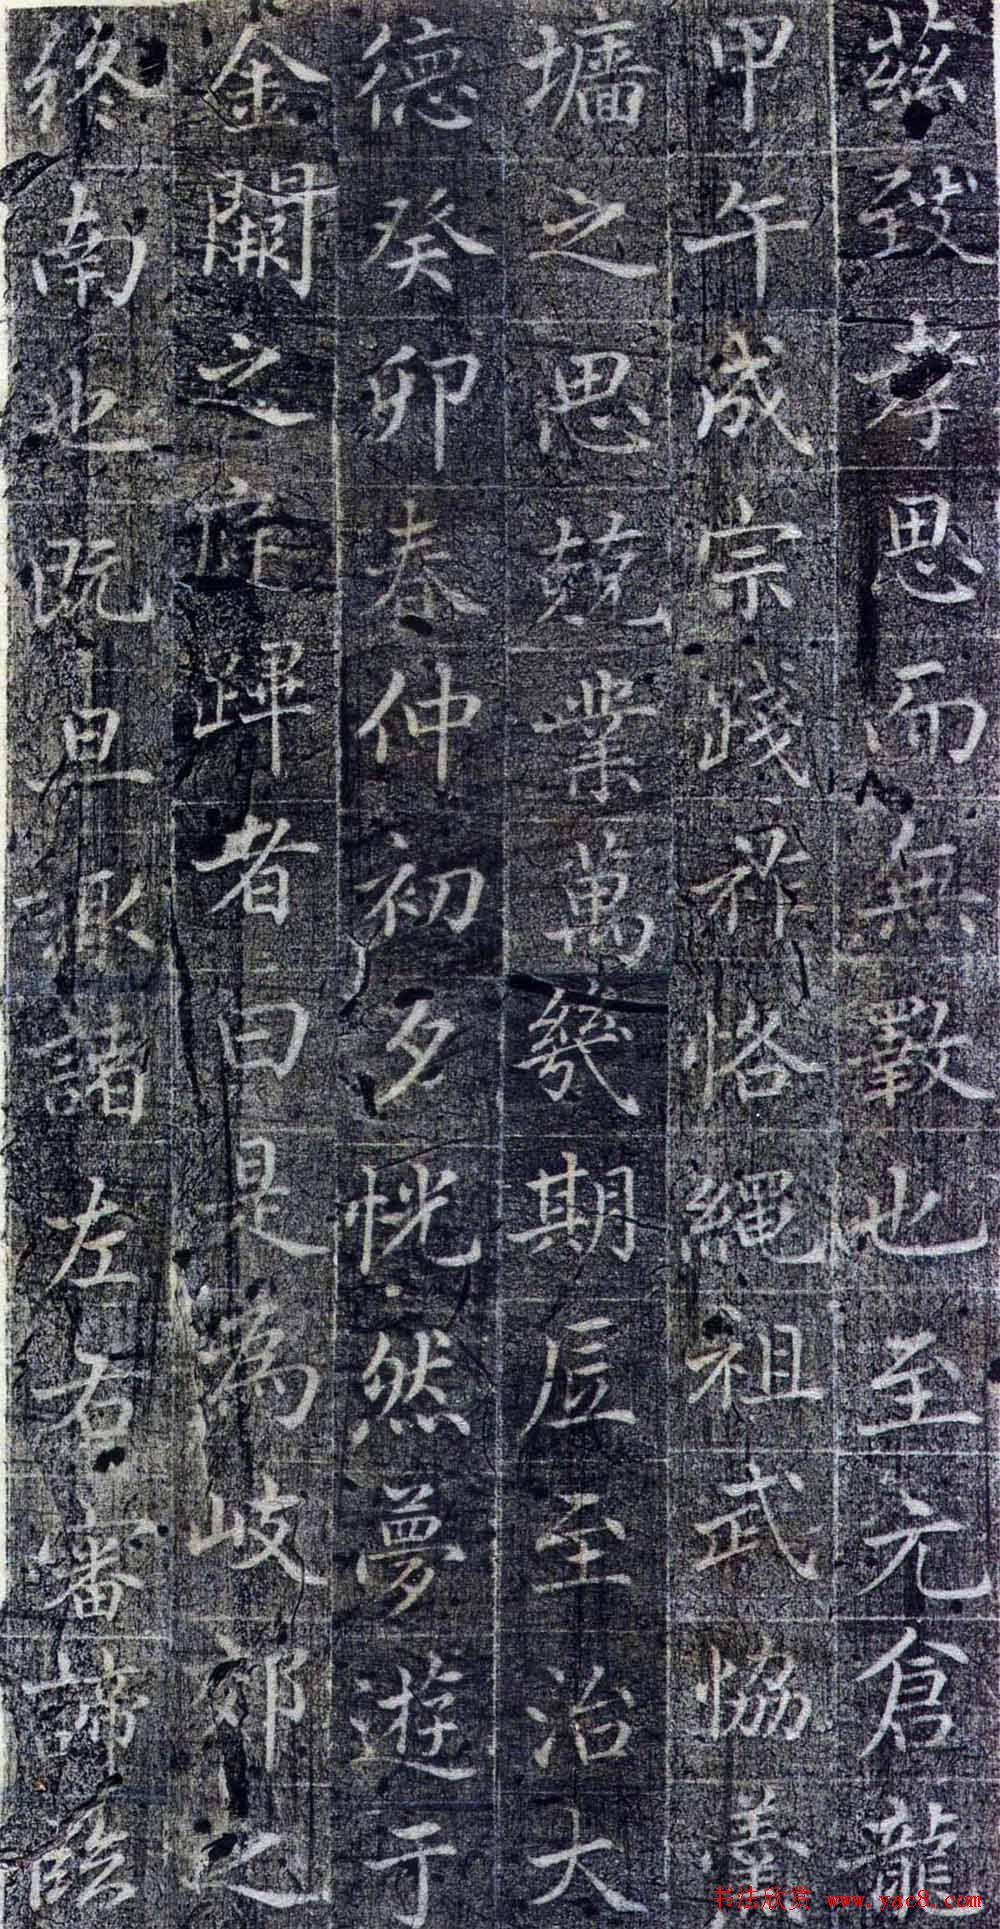 茲致孝思而無斁也至元倉龍
甲午成宗踐祚恪繩祖武恊羹
墻之思兢業萬幾期底至治大
德癸卯春仲初夕恍然夢遊于
金闕之庭蹕者曰是為岐郊之
終南也既旦諏諸左右審諦臨
书法欣赏 www.yac8.com